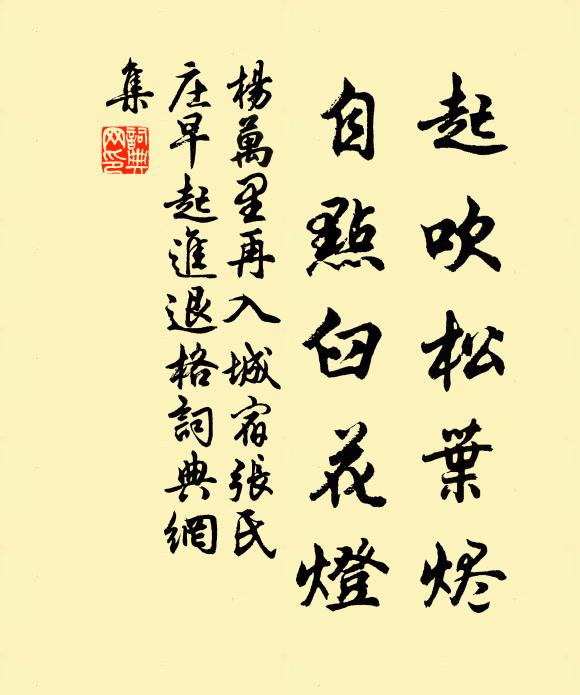 起吹松葉烬
自點臼花燈
楊萬里再入城宿張氏
庄早起進退格詞典網
集
詞典网印